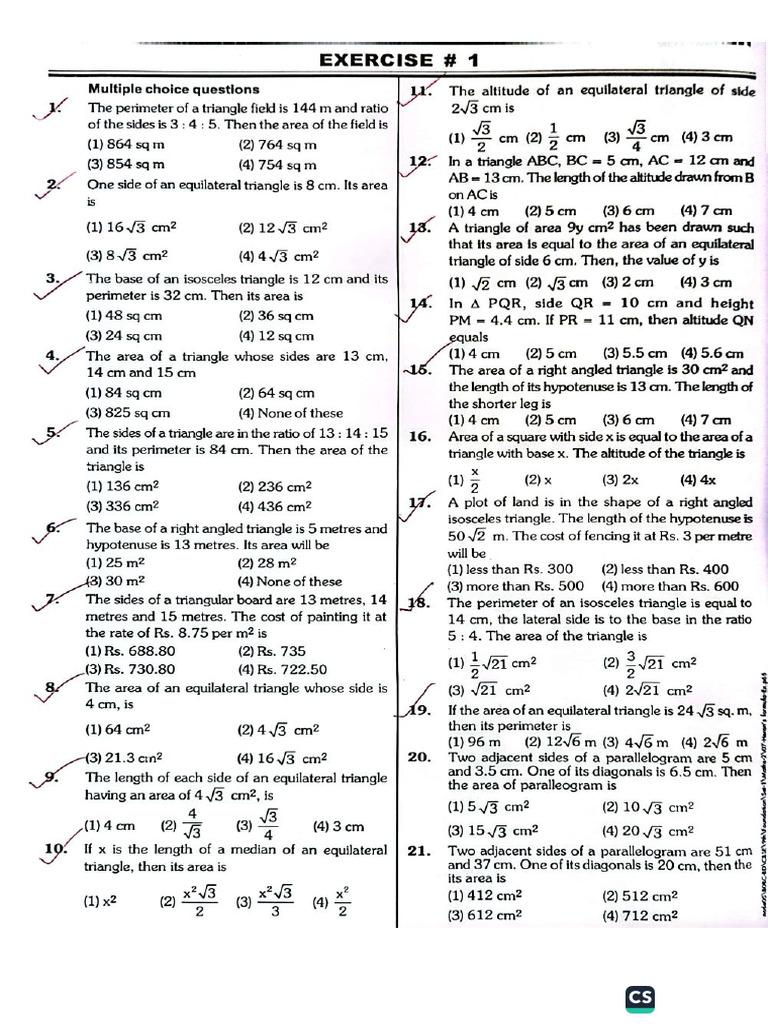 EXERCISE # 1
Multiple choice questions
1. The perimeter of a triangle field is 144 m and ratio
of the sides is 3 : 4 : 5. Then the area of the field is
(1) 864 sq m (2) 764 sq m
(3) 854 sq m (4) 754 sq m
2. One side of an equilateral triangle is 8 cm. Its area
is
(1) 16√3 cm² (2) 12√3 cm²
(3) 8√3 cm² (4) 4√3 cm²
3. The base of an isosceles triangle is 12 cm and its
perimeter is 32 cm. Then its area is
(1) 48 sq cm (2) 36 sq cm
(3) 24 sq cm (4) 12 sq cm
4. The area of a triangle whose sides are 13 cm,
14 cm and 15 cm
(1) 84 sq cm (2) 64 sq cm
(3) 825 sq cm (4) None of these
5. The sides of a triangle are in the ratio of 13 : 14 : 15
and its perimeter is 84 cm. Then the area of the
triangle is
(1) 136 cm² (2) 236 cm²
(3) 336 cm² (4) 436 cm²
6. The base of a right angled triangle is 5 metres and
hypotenuse is 13 metres. Its area will be
(1) 25 m² (2) 28 m²
(3) 30 m² (4) None of these
7. The sides of a triangular board are 13 metres, 14
metres and 15 metres. The cost of painting it at
the rate of Rs. 8.75 per m² is
(1) Rs. 688.80 (2) Rs. 735
(3) Rs. 730.80 (4) Rs. 722.50
8. The area of an equilateral triangle whose side is
4 cm, is
(1) 64 cm² (2) 4√3 cm²
(3) 21.3 cm² (4) 16√3 cm²
9. The length of each side of an equilateral triangle
having an area of 4√3 cm², is
(1) 4 cm (2) 4/√3 (3) √3/4 (4) 3 cm
10. If x is the length of a median of an equilateral
triangle, then its area is
(1) x² (2) x²√3/2 (3) x²√3/3 (4) x²/2
11. The altitude of an equilateral triangle of side
2√3 cm is
(1) √3/2 cm (2) 1/2 cm (3) √3/4 cm (4) 3 cm
12. In a triangle ABC, BC = 5 cm, AC = 12 cm and
AB = 13 cm. The length of the altitude drawn from B
on AC is
(1) 4 cm (2) 5 cm (3) 6 cm (4) 7 cm
13. A triangle of area 9y cm² has been drawn such
that its area is equal to the area of an equilateral
triangle of side 6 cm. Then, the value of y is
(1) √2 cm (2) √3 cm (3) 2 cm (4) 3 cm
14. In Δ PQR, side QR = 10 cm and height
PM = 4.4 cm. If PR = 11 cm, then altitude QN
equals
(1) 4 cm (2) 5 cm (3) 5.5 cm (4) 5.6 cm
15. The area of a right angled triangle is 30 cm² and
the length of its hypotenuse is 13 cm. The length of
the shorter leg is
(1) 4 cm (2) 5 cm (3) 6 cm (4) 7 cm
16. Area of a square with side x is equal to the area of a
triangle with base x. The altitude of the triangle is
(1) x/2 (2) x (3) 2x (4) 4x
17. A plot of land is in the shape of a right angled
isosceles triangle. The length of the hypotenuse is
50√2 m. The cost of fencing it at Rs. 3 per metre
will be
(1) less than Rs. 300 (2) less than Rs. 400
(3) more than Rs. 500 (4) more than Rs. 600
18. The perimeter of an isosceles triangle is equal to
14 cm, the lateral side is to the base in the ratio
5 : 4. The area of the triangle is
(1) 1/2 √21 cm² (2) 3/2 √21 cm²
(3) √21 cm² (4) 2√21 cm²
19. If the area of an equilateral triangle is 24√3 sq. m,
then its perimeter is
(1) 96 m (2) 12√6 m (3) 4√6 m (4) 2√6 m
20. Two adjacent sides of a parallelogram are 5 cm
and 3.5 cm. One of its diagonals is 6.5 cm. Then
the area of paralleogram is
(1) 5√3 cm² (2) 10√3 cm²
(3) 15√3 cm² (4) 20√3 cm²
21. Two adjacent sides of a parallelogram are 51 cm
and 37 cm. One of its diagonals is 20 cm, then the
its area is
(1) 412 cm² (2) 512 cm²
(3) 612 cm² (4) 712 cm²
CS